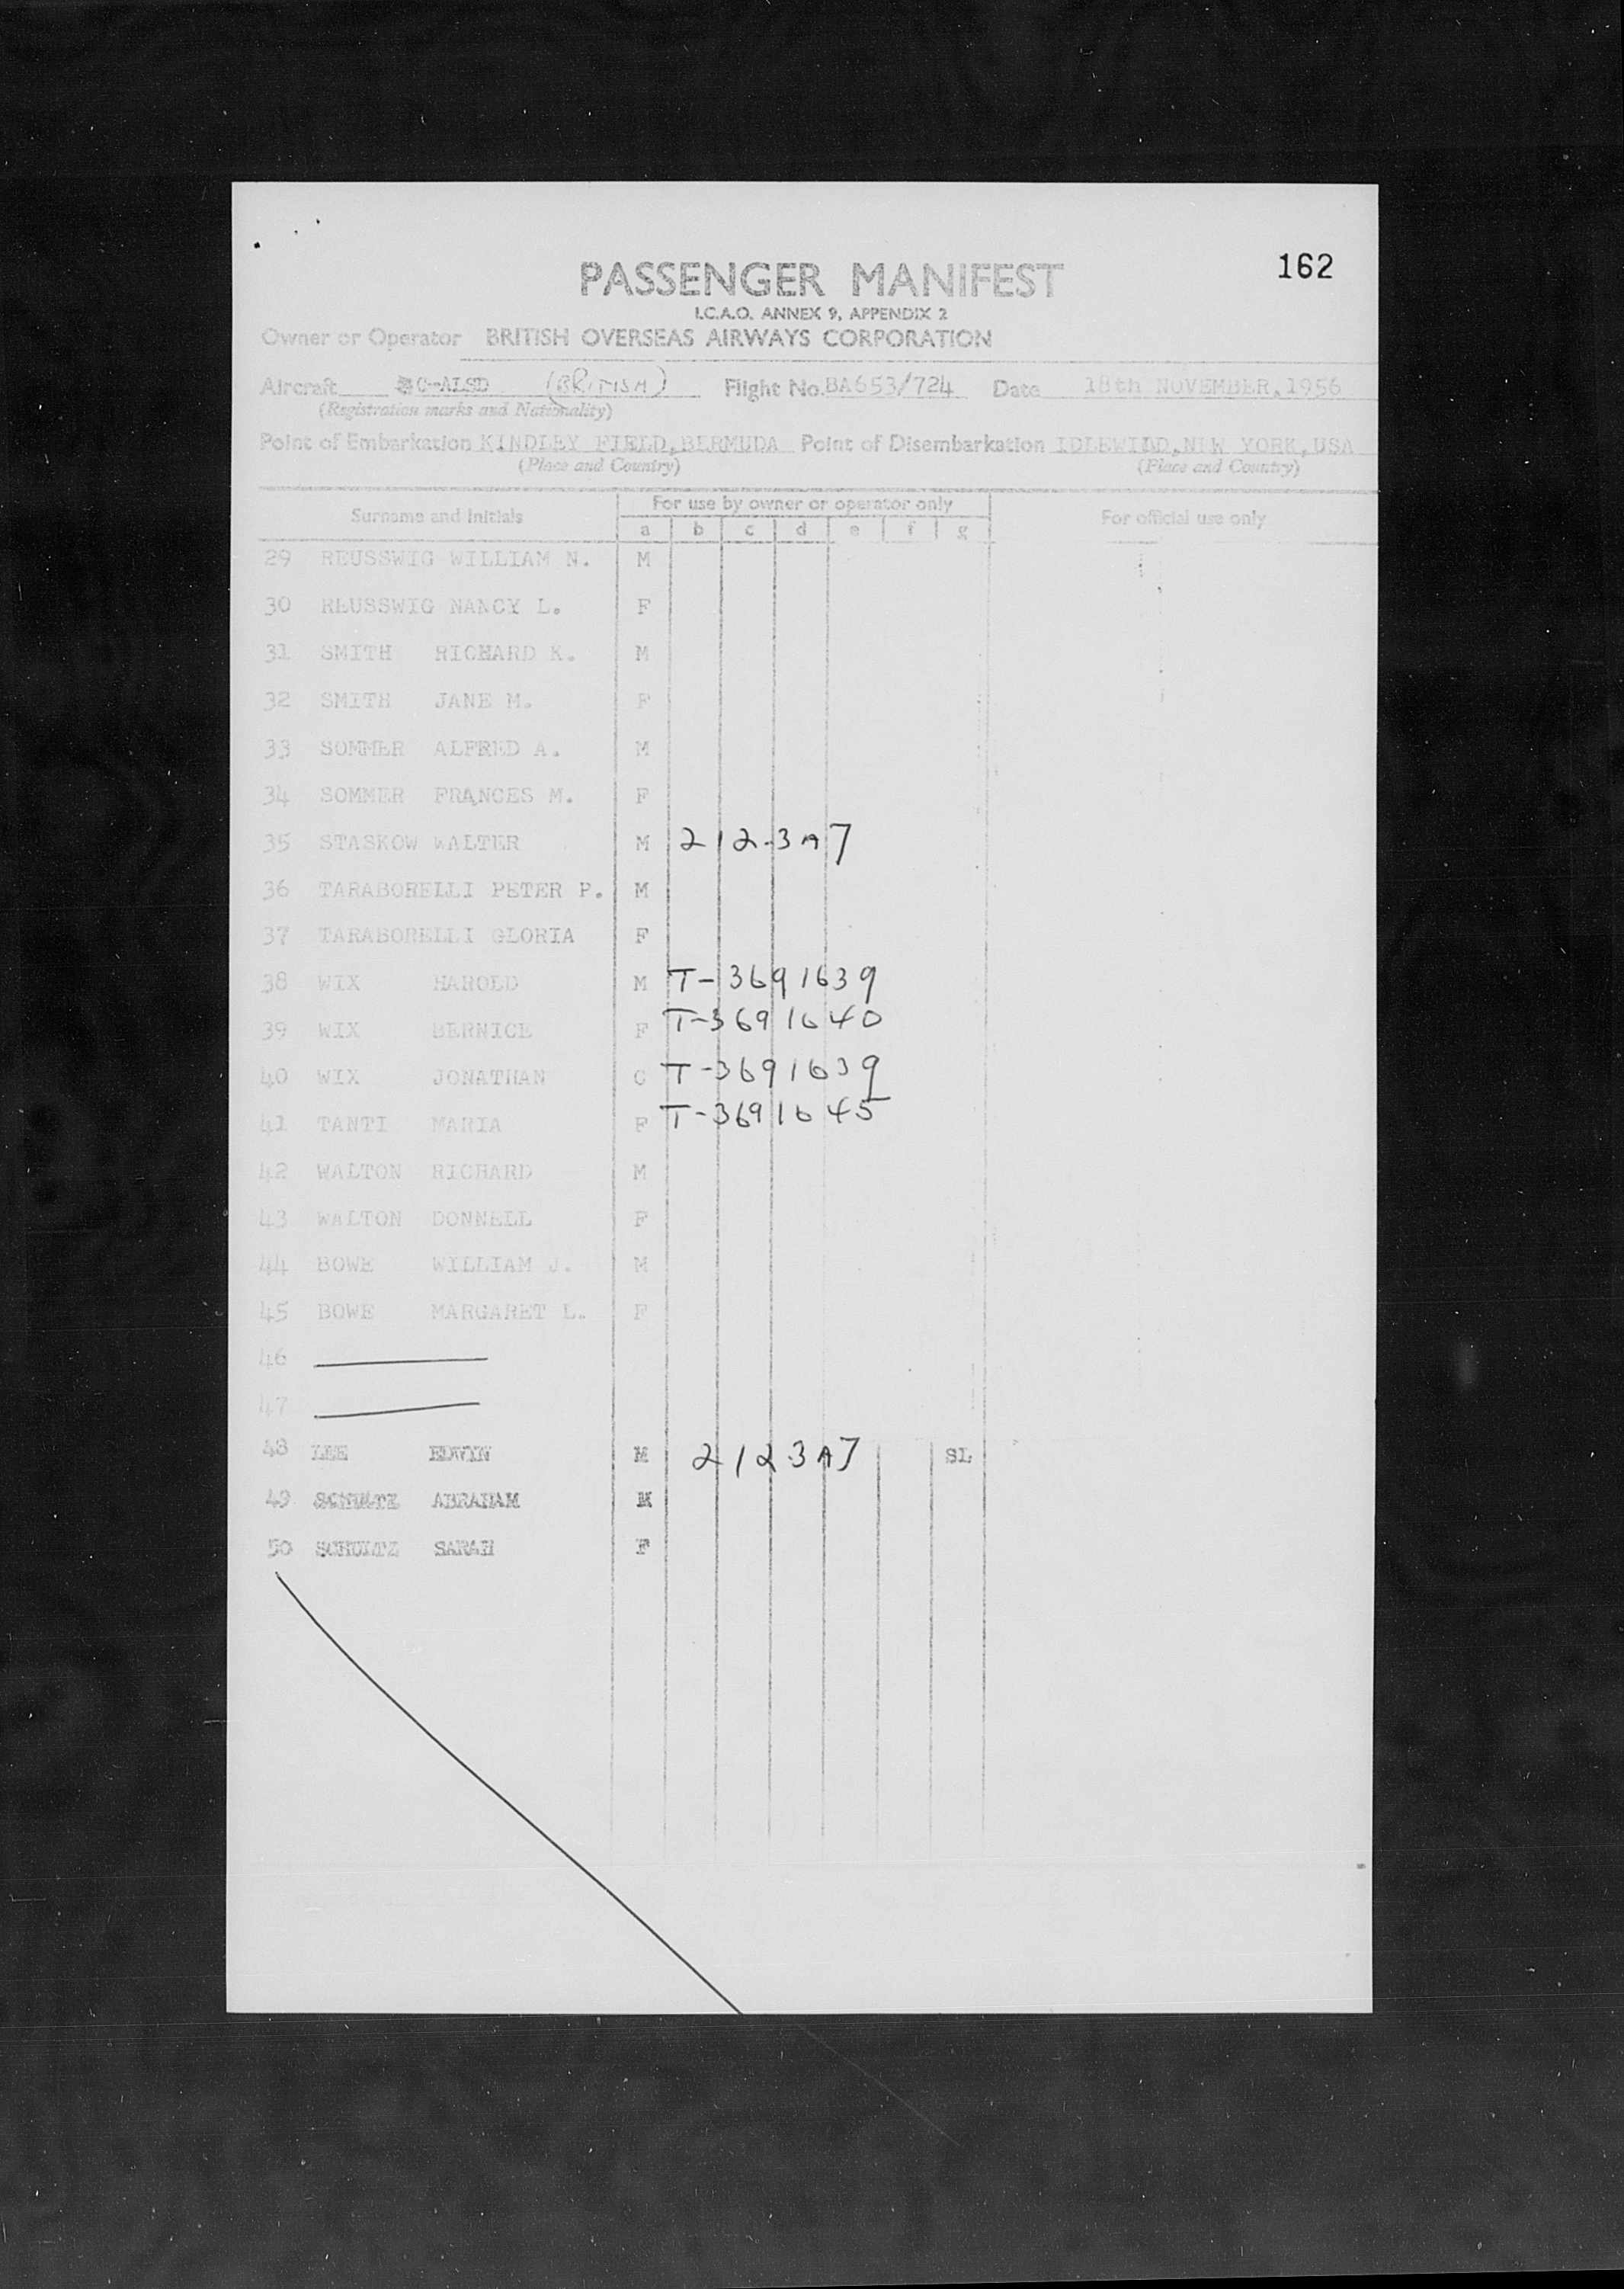 162
PASSENGER MANIFEST
I.C.A.O. ANNEX 9, APPENDIX 2
Owner or Operator BRITISH OVERSEAS AIRWAYS CORPORATION
Aircraft G-ALSD (BRITISH) Flight No. BA653/724 Date 18th NOVEMBER, 1956
(Registration marks and Nationality)
Point of Embarkation KINDLEY FIELD, BERMUDA Point of Disembarkation IDLEWILD, NEW YORK, USA
(Place and Country) (Place and Country)
Surname and Initials For use by owner or operator only For official use only
a b c d e f g
29 REUSSWIG WILLIAM N. M
30 REUSSWIG NANCY L. F
31 SMITH RICHARD K. M
32 SMITH JANE M. F
33 SOMMER ALFRED A. M
34 SOMMER FRANCES M. F
35 STASKOW WALTER M 212.3A7
36 TARABORELLI PETER P. M
37 TARABORELLI GLORIA F
38 WIX HAROLD M T-3691639
39 WIX BERNICE F T-3691640
40 WIX JONATHAN C T-3691639
41 TANTI MARIA F T-3691645
42 WALTON RICHARD M
43 WALTON DONNELL F
44 BOWE WILLIAM J. M
45 BOWE MARGARET L. F
46
47
48 LEE EDWYN M 212.3A7 SL
49 SCHULTZ ABRAHAM M
50 SCHULTZ SARAH F